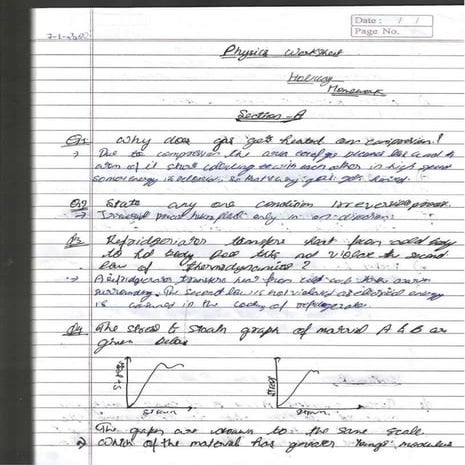 Date : / /
Page No.
Physics Worksheet
Holiday
Homework
Section-A
Q1 Why does gas gets heated on compression?
→ Due to compression the
atom of it start with each other in high speed
some energy is so that way gas gets heated.
Q2 State any one condition Irreversible process.
→ process takes place only in one direction.
Q3 Refridgerator transfere heat from cold body
to hot body does this not violate the second
law of thermodynamics?
→ A refridgerator transfers heat from cold
surrounding. The second law is not violated as electrical energy
is in the of refridgerator.
Q4 The stress & strain graph of material A & B are
given below
Stress
Strain
Stress
Strain
The graph are drawn to the same scale.
→ Which of the material has greater Young's modulus